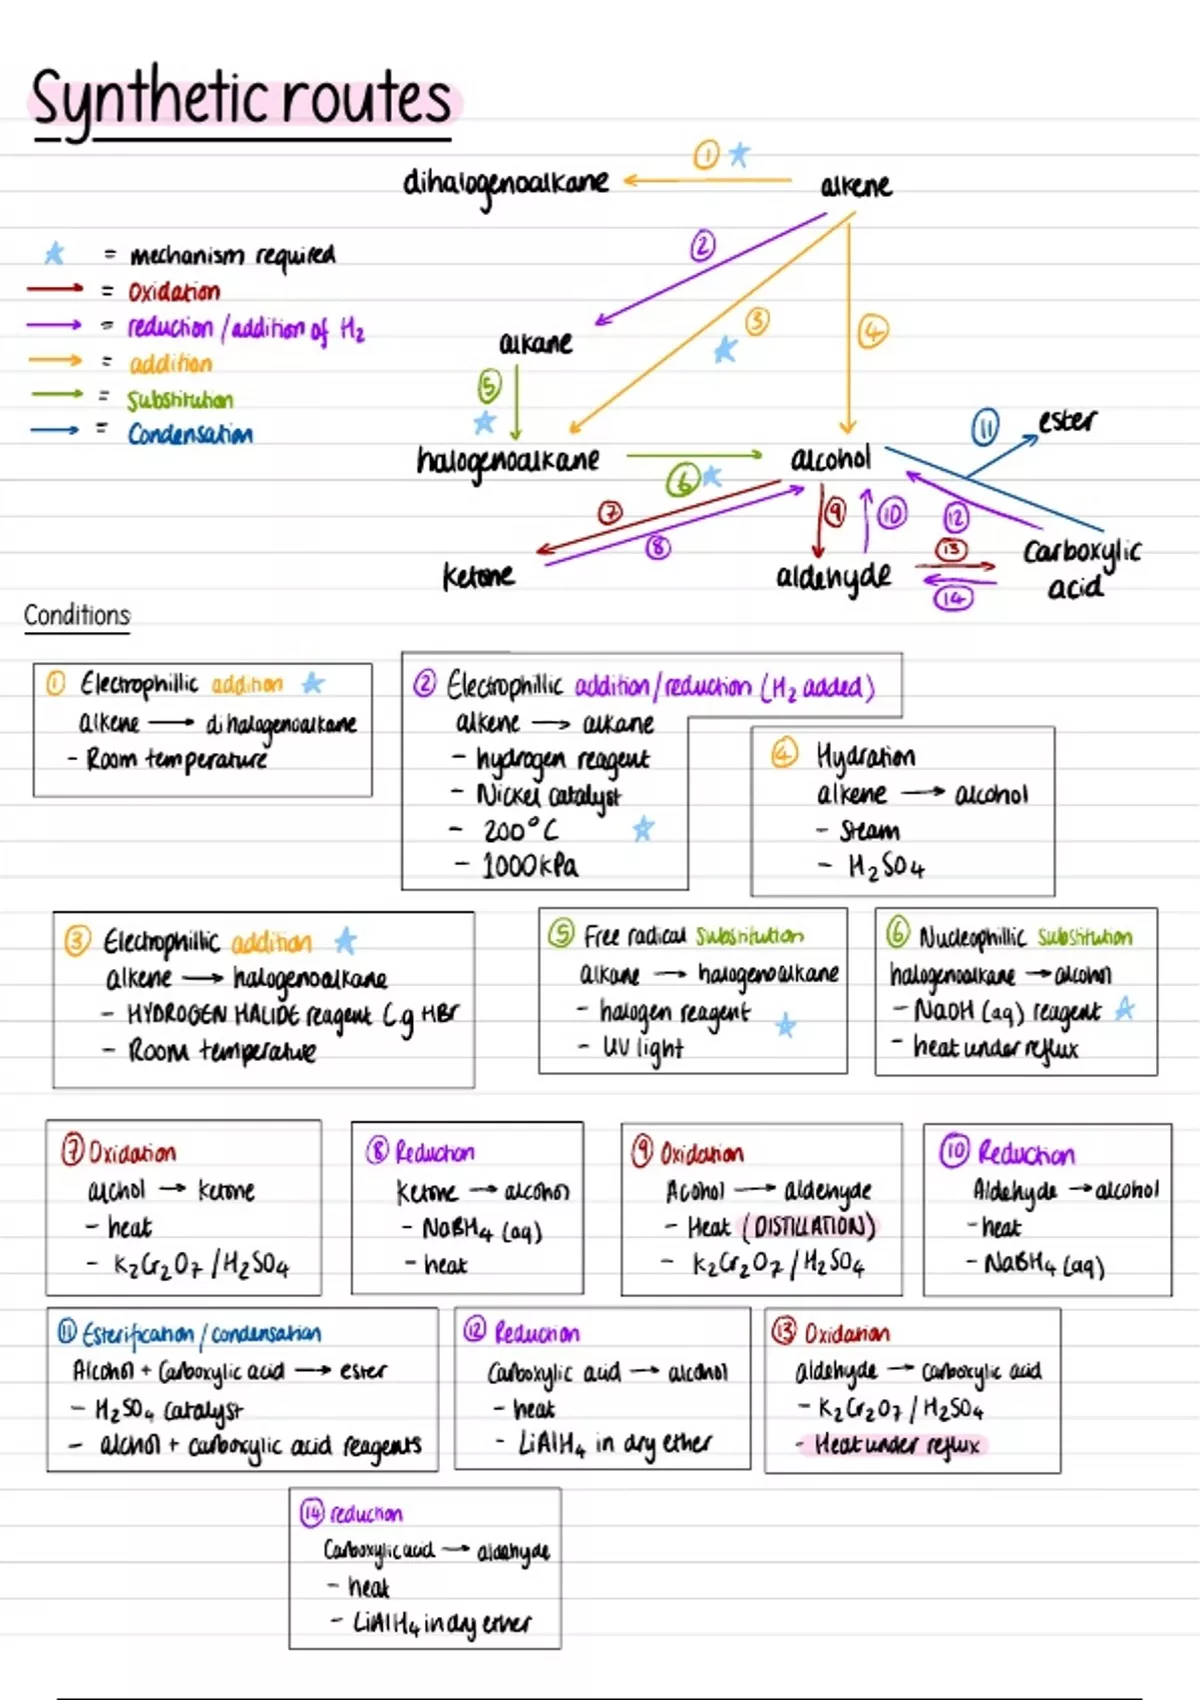 Synthetic routes
① ★
dihalogenoalkane ← alkene
★ = mechanism required
→ = Oxidation
→ = reduction /addition of H₂
→ = addition
→ = Substitution
→ = Condensation
②
③
★
④
alkane
⑤
★
halogenoalkane
⑥ ★
alcohol
⑪
ester
⑦
⑧
⑨
⑩
⑫
⑬
⑭
Ketone
aldehyde
Carboxylic
acid
Conditions
① Electrophillic addition ★
alkene → dihalogenoalkane
- Room temperature
② Electrophillic addition/reduction (H₂ added)
alkene → alkane
- hydrogen reagent
- Nickel catalyst
- 200°C ★
- 1000kPa
④ Hydration
alkene → alcohol
- Steam
- H₂SO₄
③ Electrophillic addition ★
alkene → halogenoalkane
- HYDROGEN HALIDE reagent e.g HBr
- Room temperature
⑤ Free radical Substitution
alkane → halogenoalkane
- halogen reagent ★
- UV light
⑥ Nucleophillic substitution
halogenoalkane → alcohol
- NaOH (aq) reagent ★
- heat under reflux
⑦ Oxidation
alchol → ketone
- heat
- K₂Cr₂O₇ /H₂SO₄
⑧ Reduction
Ketone → alcohol
- NaBH₄ (aq)
- heat
⑨ Oxidation
Acohol → aldehyde
- Heat (DISTILLATION)
- K₂Cr₂O₇ / H₂SO₄
⑩ Reduction
Aldehyde → alcohol
- heat
- NaBH₄ (aq)
⑪ Esterification / condensation
Alcohol + Carboxylic acid → ester
- H₂SO₄ catalyst
- alchol + carboxylic acid reagents
⑫ Reduction
Carboxylic acid → alcohol
- heat
- LiAlH₄ in dry ether
⑬ Oxidation
aldehyde → carboxylic acid
- K₂Cr₂O₇ / H₂SO₄
- Heat under reflux
⑭ reduction
Carboxylic acid → aldehyde
- heat
- LiAlH₄ in dry ether